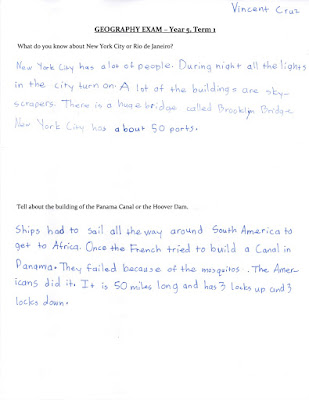 Vincent Cruz
GEOGRAPHY EXAM – Year 5, Term 1
What do you know about New York City or Rio de Janeiro?
New York City has a lot of people. During night all the lights
in the city turn on. A lot of the buildings are sky-
scrapers. There is a huge bridge called Brooklyn Bridge
New York City has about 50 ports.
Tell about the building of the Panama Canal or the Hoover Dam.
Ships had to sail all the way around South America to
get to Africa. Once the French tried to build a Canal in
Panama. They failed because of the mosquitos. The Amer-
icans did it. It is 50 miles long and has 3 locks up and 3
locks down.